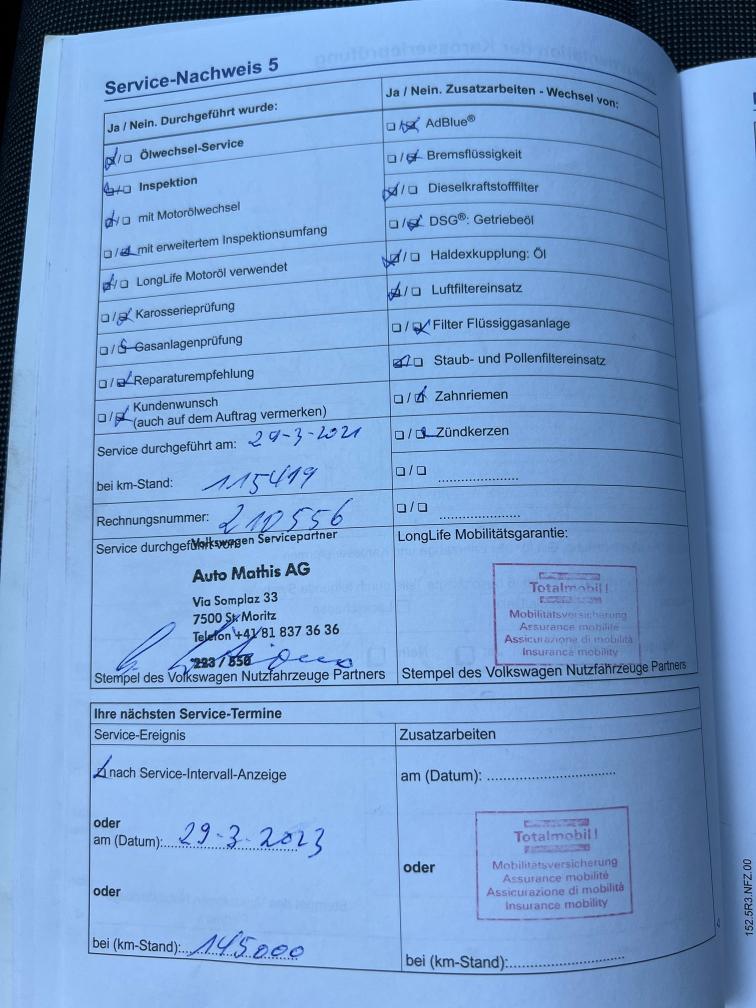 Service-Nachweis 5
Ja / Nein. Durchgeführt wurde:
Ölwechsel-Service
Inspektion
mit Motorölwechsel
mit erweitertem Inspektionsumfang
LongLife Motoröl verwendet
Karosserieprüfung
Gasanlagenprüfung
Reparaturempfehlung
Kundenwunsch
(auch auf dem Auftrag vermerken)
Service durchgeführt am: 29-3-2021
bei km-Stand: 115419
Rechnungsnummer: 210556
Service durchgeführt von:
Volkswagen Servicepartner
Auto Mathis AG
Via Somplaz 33
7500 St. Moritz
Telefon +41 81 837 36 36
223 / 550
Stempel des Volkswagen Nutzfahrzeuge Partners
Ja / Nein. Zusatzarbeiten - Wechsel von:
AdBlue®
Bremsflüssigkeit
Dieselkraftstofffilter
DSG®: Getriebeöl
Haldexkupplung: Öl
Luftfiltereinsatz
Filter Flüssiggasanlage
Staub- und Pollenfiltereinsatz
Zahnriemen
Zündkerzen
LongLife Mobilitätsgarantie:
Totalmobil!
Mobilitätsversicherung
Assurance mobilité
Assicurazione di mobilità
Insurance mobility
Stempel des Volkswagen Nutzfahrzeuge Partners
Ihre nächsten Service-Termine
Service-Ereignis
nach Service-Intervall-Anzeige
oder
am (Datum): 29-3-2023
oder
bei (km-Stand): 145000
Zusatzarbeiten
am (Datum):
Totalmobil!
Mobilitätsversicherung
Assurance mobilité
Assicurazione di mobilità
Insurance mobility
oder
bei (km-Stand):
152.5R3.NFZ.00